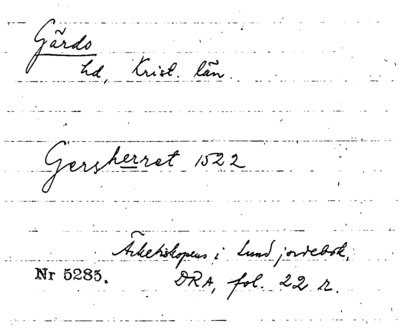 Gärds
hd, Krist. län.
Gersherret 1522
Ärkebiskopens i Lund jordebok,
Nr 5285. DRA, fol. 22 r.